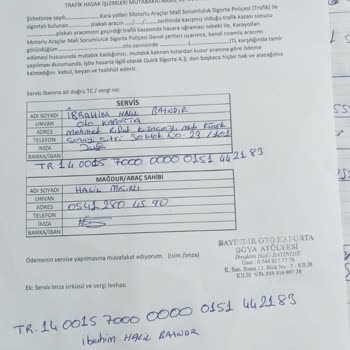 TRAFİK HASAR İŞLEMLERİ MUTABAKATNAME
Şirketinize sayılı Kara yolları Motorlu Araçlar Mali Sorumluluk Sigorta Poliçesi (Trafik) ile
sigortalı bulunan plakalı aracın tarihinde karışmış olduğu trafik kazası sonucu
plakalı aracımızın geçirdiği trafik kazasında hasara uğraması sebebi ile, Karayolları
Motorlu Araçlar Mali Sorumluluk Sigorta Poliçesi Genel şartları uyarınca, kendi rızamla aracımı
gördüğüm oto servisinde TL karşılığında tamir
edilmesi hususunda mutabık kaldığımızı, mutabık kalınan tutardan kusur oranına göre ödeme
yapılması durumunda, işbu hasarla ilgili olarak Quick Sigorta A.Ş. den başkaca hiçbir hak ve alacağımız
kalmadığını kabul, beyan ve taahhüt ederiz.
Servis ibanına ait doğru TC / vergi no:
SERVİS
ADI SOYADI İBRAHİM HALİL BAYNDIR
UNVAN OTO KAPORTA
ADRES mehmet
TELEFON No- 23 / 101
İMZA
BANKA/İBAN
TR 14 0015 7000 0000 0151 442183
MAĞDUR/ARAÇ SAHİBİ
ADI SOYADI HALİL MISIRLI
UNVAN
ADRES 0541 280 45 90
TELEFON
İMZA
BANKA/İBAN
Ödemenin servise yapılmasına muvafakat ediyorum. (isim /imza)
BAYINDIR OTO KAPORTA
BOYA ATÖLYESİ
İbrahim Halil BAYINDIR
K. San. Sitesi 11. Blok No: 7 - KİLİS
Ek: Servis imza sirküsü ve vergi levhası
TR.14 0015 7000 0000 0151 442183
ibrahim HALİL BAYNDIR